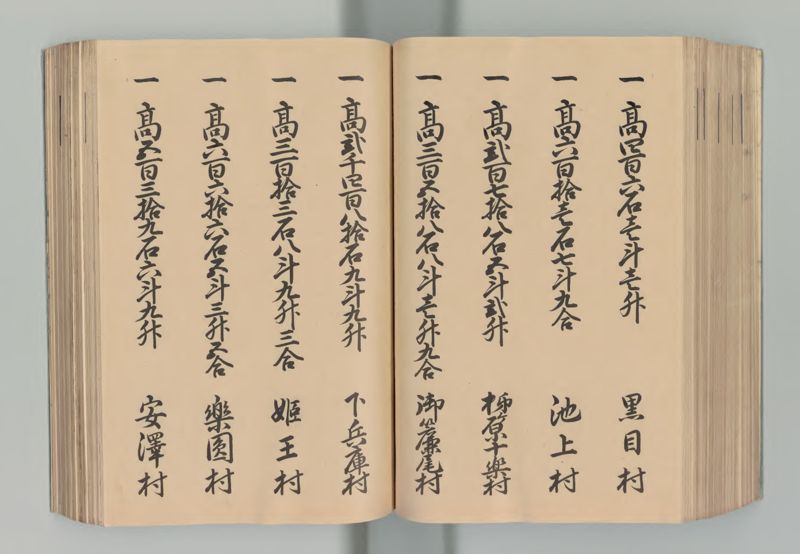 一 高四百六石壱斗壱升 黒目村
一 高六百拾壱石七斗九合 池上村
一 高弐百七拾八石五斗弐升 楽村
一 高三百五拾八石八斗壱升九合 御簾尾村
一 高弐千四百八拾石九斗九升 下兵庫村
一 高三百拾三石八斗九升三合 姫王村
一 高六百六拾六石五斗三升五合 樂圓村
一 高五百三拾九石六斗九升 安澤村